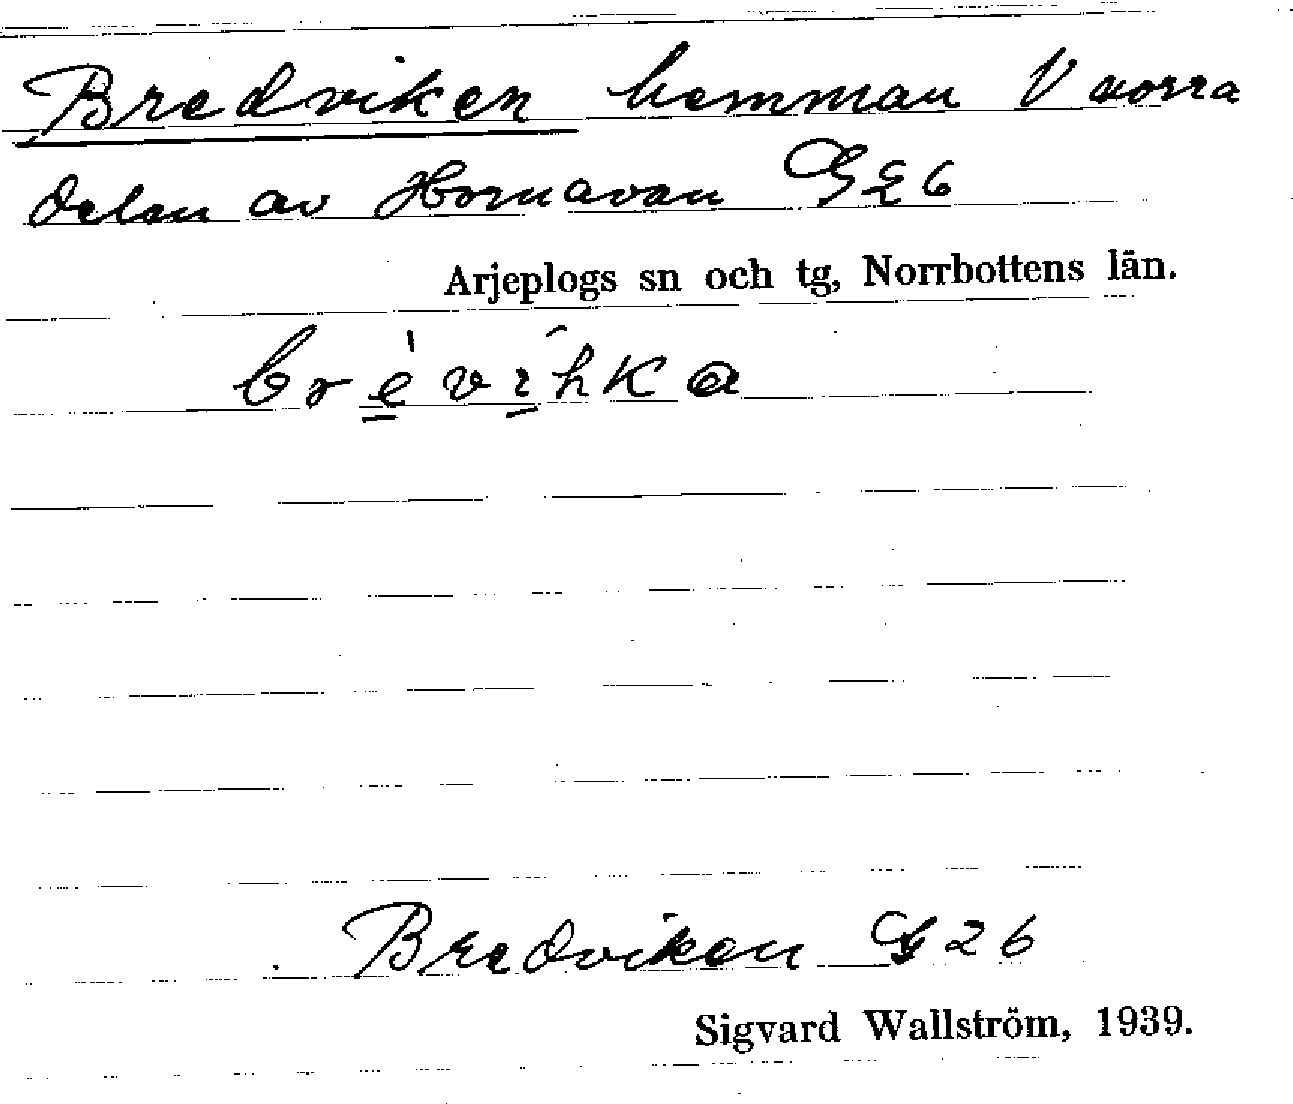 Bredviken hemman V norra
delen av Hornavan G26
Arjeplogs sn och tg, Norrbottens län.
brévihka
Bredviken G26
Sigvard Wallström, 1939.